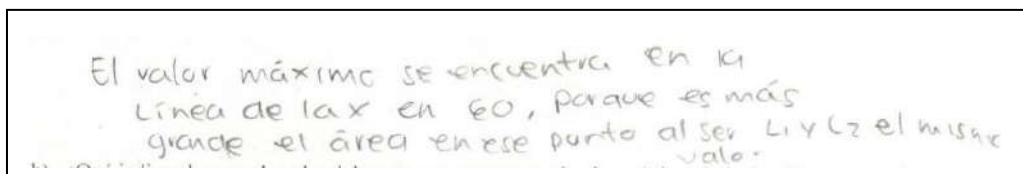 El valor máximo se encuentra en la
Línea de la x en 60, porque es más
grande el área en ese punto al ser L1 y L2 el mismo
valor.